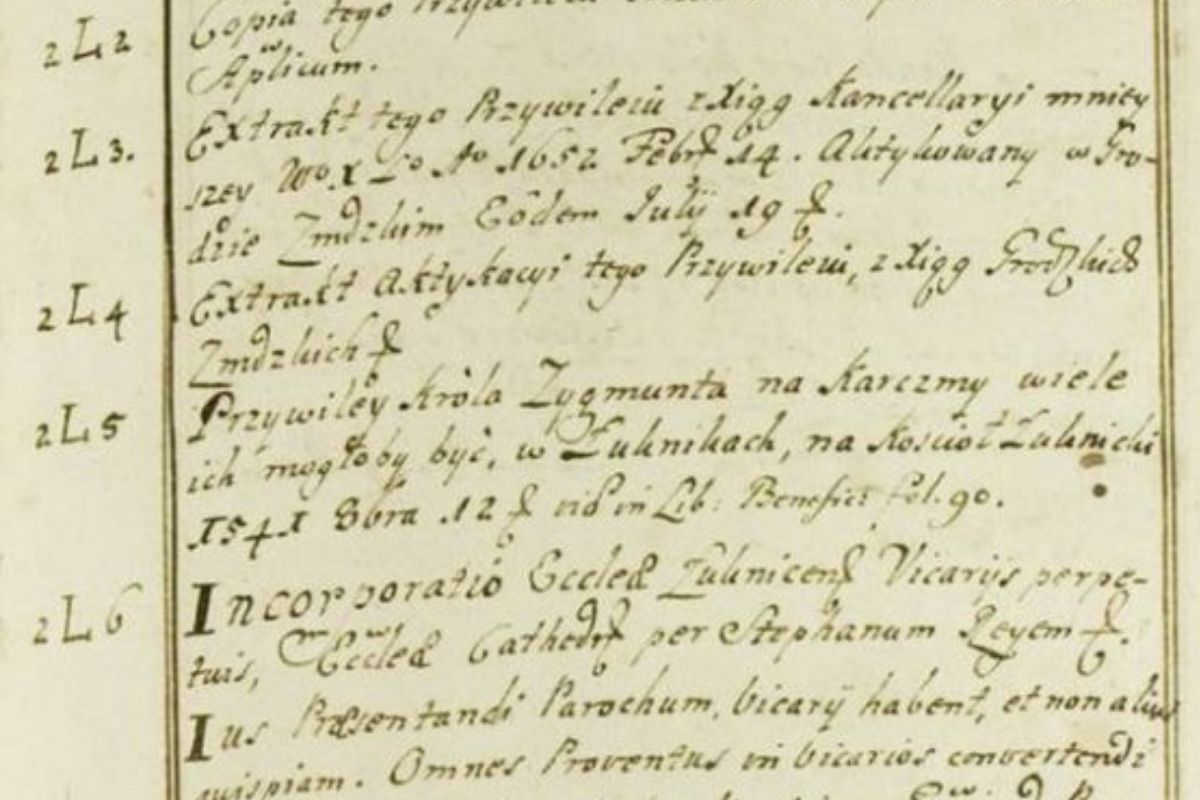 2 L 2 Copia tego Przywileiu
Aplicum.
2 L 3. Extrakt tego Przywileiu z Xiąg Kancellaryi mniey
szey Wo X Lo Ao 1652 Febr 14. Aktykowany w Gro-
dzie Zmdzkim Eodem Julij 19
2 L 4 Extrakt Aktykacyi tego Przywileiu, z Xiąg Grodzkich
Zmdzkich
2 L 5 Przywiley Krola Zygmunta na Karczmy wiele
ich mogłoby być, w Łuknikach, na Kościoł Łuknicki
1541 8bra 12 vid in Lib: Benefici: fol. 90.
2 L 6 Incorporatio Eccleæ Łuknicen Vicarijs perpe-
tuis, Eccleæ Cathedr per Stephanum Regem
Ius Præsentandi Parochum, Vicarij habent, et non alius
quispiam. Omnes Proventus in Vicarios convertendi